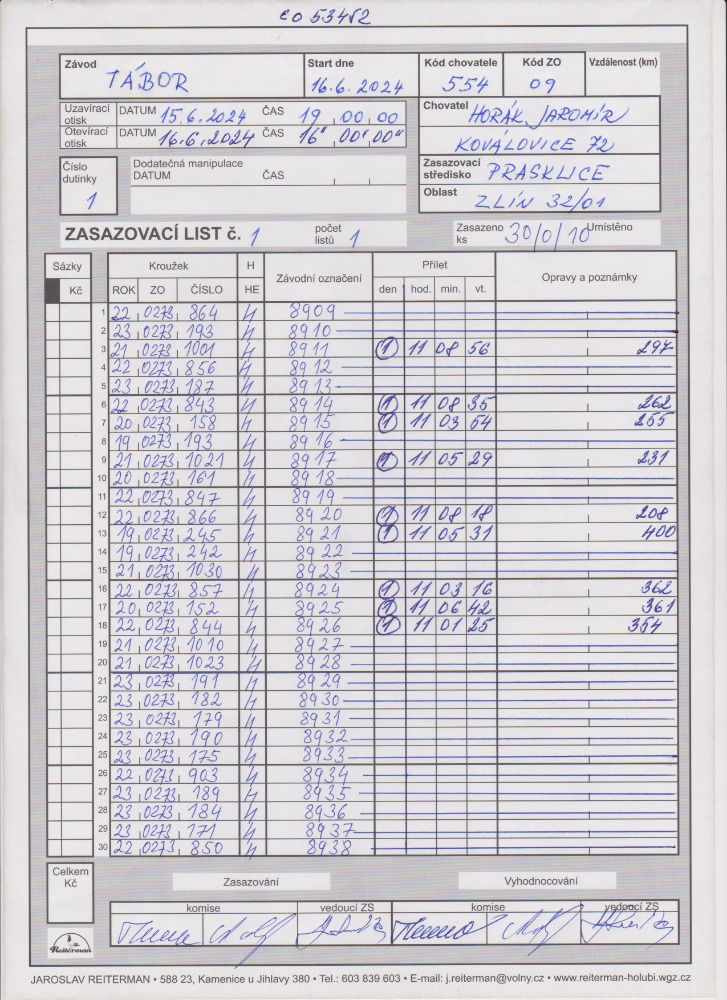 CO 53452
Závod Start dne Kód chovatele Kód ZO Vzdálenost (km)
TÁBOR 16.6.2024 554 09
Uzavírací otisk DATUM 15.6.2024 ČAS 19 00 00
Otevírací otisk DATUM 16.6.2024 ČAS 16" 00" 00"
Chovatel HORÁK JAROMÍR
KOVÁLOVICE 72
Číslo dutinky 1
Dodatečná manipulace
DATUM ČAS
Zasazovací středisko PRASKLICE
Oblast ZLÍN 32/01
ZASAZOVACÍ LIST č. 1 počet listů 1 Zasazeno ks 30/0/10 Umístěno
Sázky Kroužek H Závodní označení Přílet Opravy a poznámky
Kč ROK ZO ČÍSLO HE den hod. min. vt.
1 22 0273 864 H 8909
2 23 0273 193 H 8910
3 21 0273 1001 H 8911 1 11 08 56 297
4 22 0273 856 H 8912
5 23 0273 187 H 8913
6 22 0273 843 H 8914 1 11 08 35 262
7 20 0273 158 H 8915 1 11 03 54 255
8 19 0273 193 H 8916
9 21 0273 1021 H 8917 1 11 05 29 231
10 20 0273 161 H 8918
11 22 0273 847 H 8919
12 22 0273 866 H 8920 1 11 08 18 208
13 19 0273 245 H 8921 1 11 05 31 400
14 19 0273 242 H 8922
15 21 0273 1030 H 8923
16 22 0273 857 H 8924 1 11 03 16 362
17 20 0273 152 H 8925 1 11 06 42 361
18 22 0273 844 H 8926 1 11 01 25 354
19 21 0273 1010 H 8927
20 21 0273 1023 H 8928
21 23 0273 191 H 8929
22 23 0273 182 H 8930
23 23 0273 179 H 8931
24 23 0273 190 H 8932
25 23 0273 175 H 8933
26 22 0273 903 H 8934
27 23 0273 189 H 8935
28 23 0273 184 H 8936
29 23 0273 171 H 8937
30 22 0273 850 H 8938
Celkem Kč
Zasazování Vyhodnocování
komise vedoucí ZS komise vedoucí ZS
Reiterman
JAROSLAV REITERMAN • 588 23, Kamenice u Jihlavy 380 • Tel.: 603 839 603 • E-mail: j.reiterman@volny.cz • www.reiterman-holubi.wgz.cz